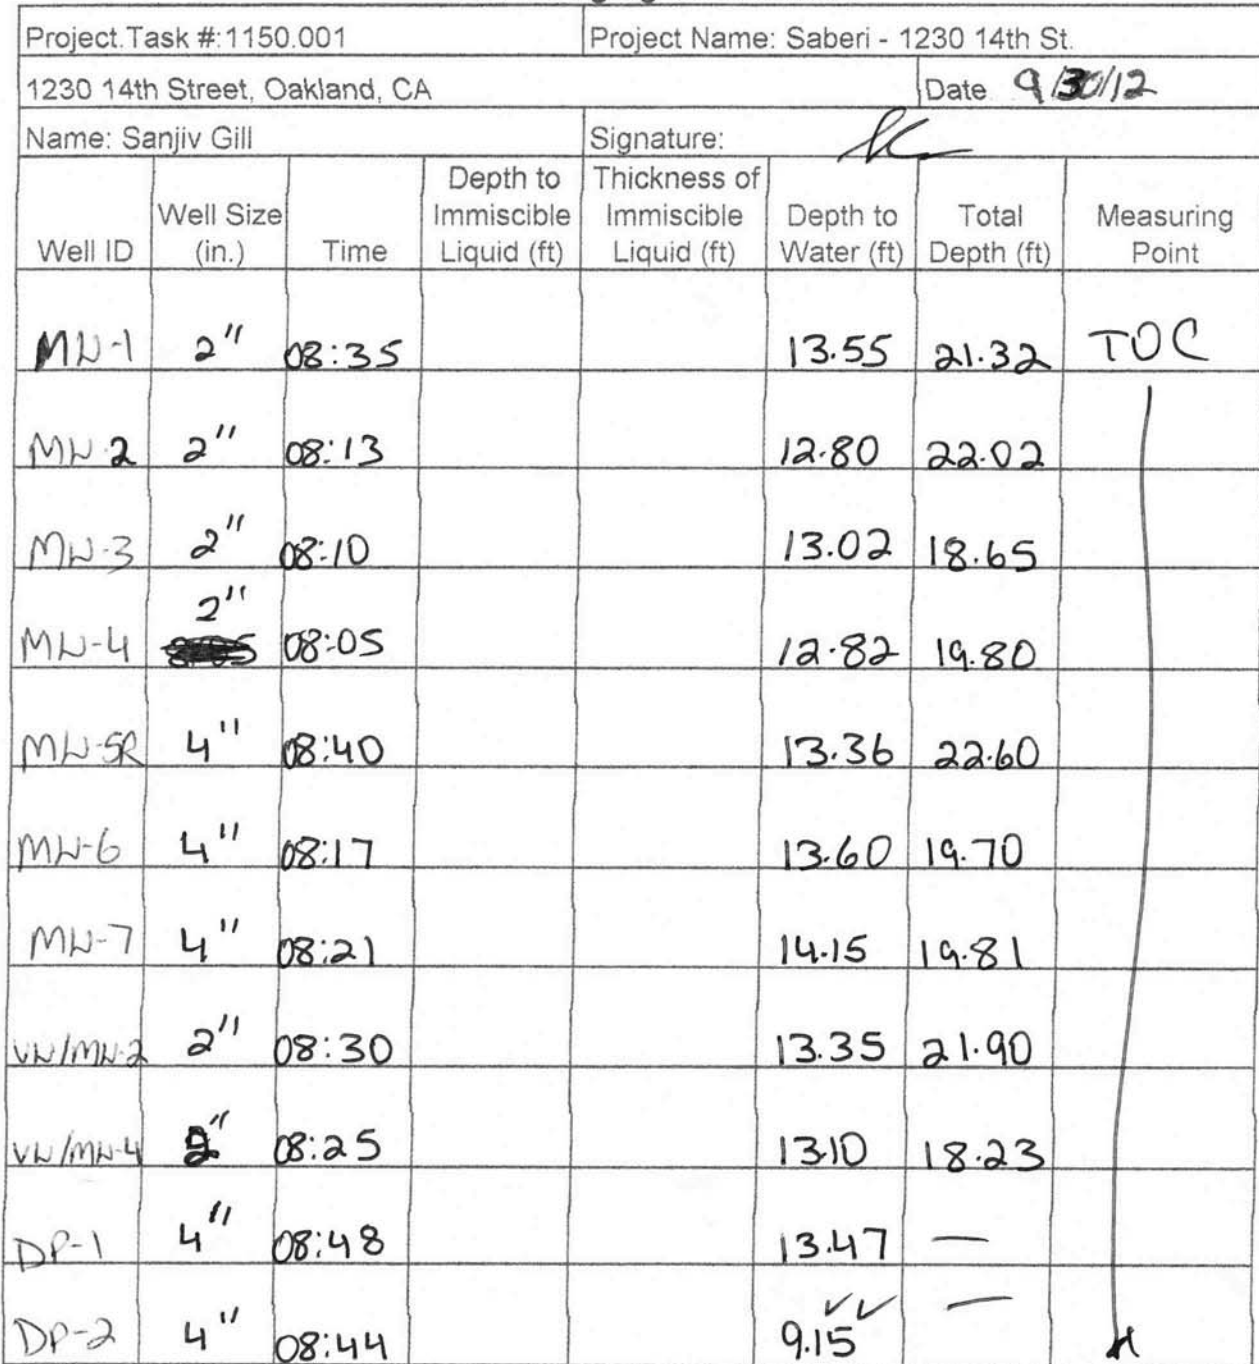 Project.Task #:1150.001 Project Name: Saberi - 1230 14th St.
1230 14th Street, Oakland, CA Date 9/30/12
Name: Sanjiv Gill Signature:
Well ID Well Size (in.) Time Depth to Immiscible Liquid (ft) Thickness of Immiscible Liquid (ft) Depth to Water (ft) Total Depth (ft) Measuring Point
MW-1 2" 08:35 13.55 21.32 TOC
MW-2 2" 08:13 12.80 22.02
MW-3 2" 08:10 13.02 18.65
MW-4 2" 08:05 12.82 19.80
MW-5R 4" 08:40 13.36 22.60
MW-6 4" 08:17 13.60 19.70
MW-7 4" 08:21 14.15 19.81
VW/MW-2 2" 08:30 13.35 21.90
VW/MW-4 2" 08:25 13.10 18.23
DP-1 4" 08:48 13.47 —
DP-2 4" 08:44 9.15 ✓✓ —